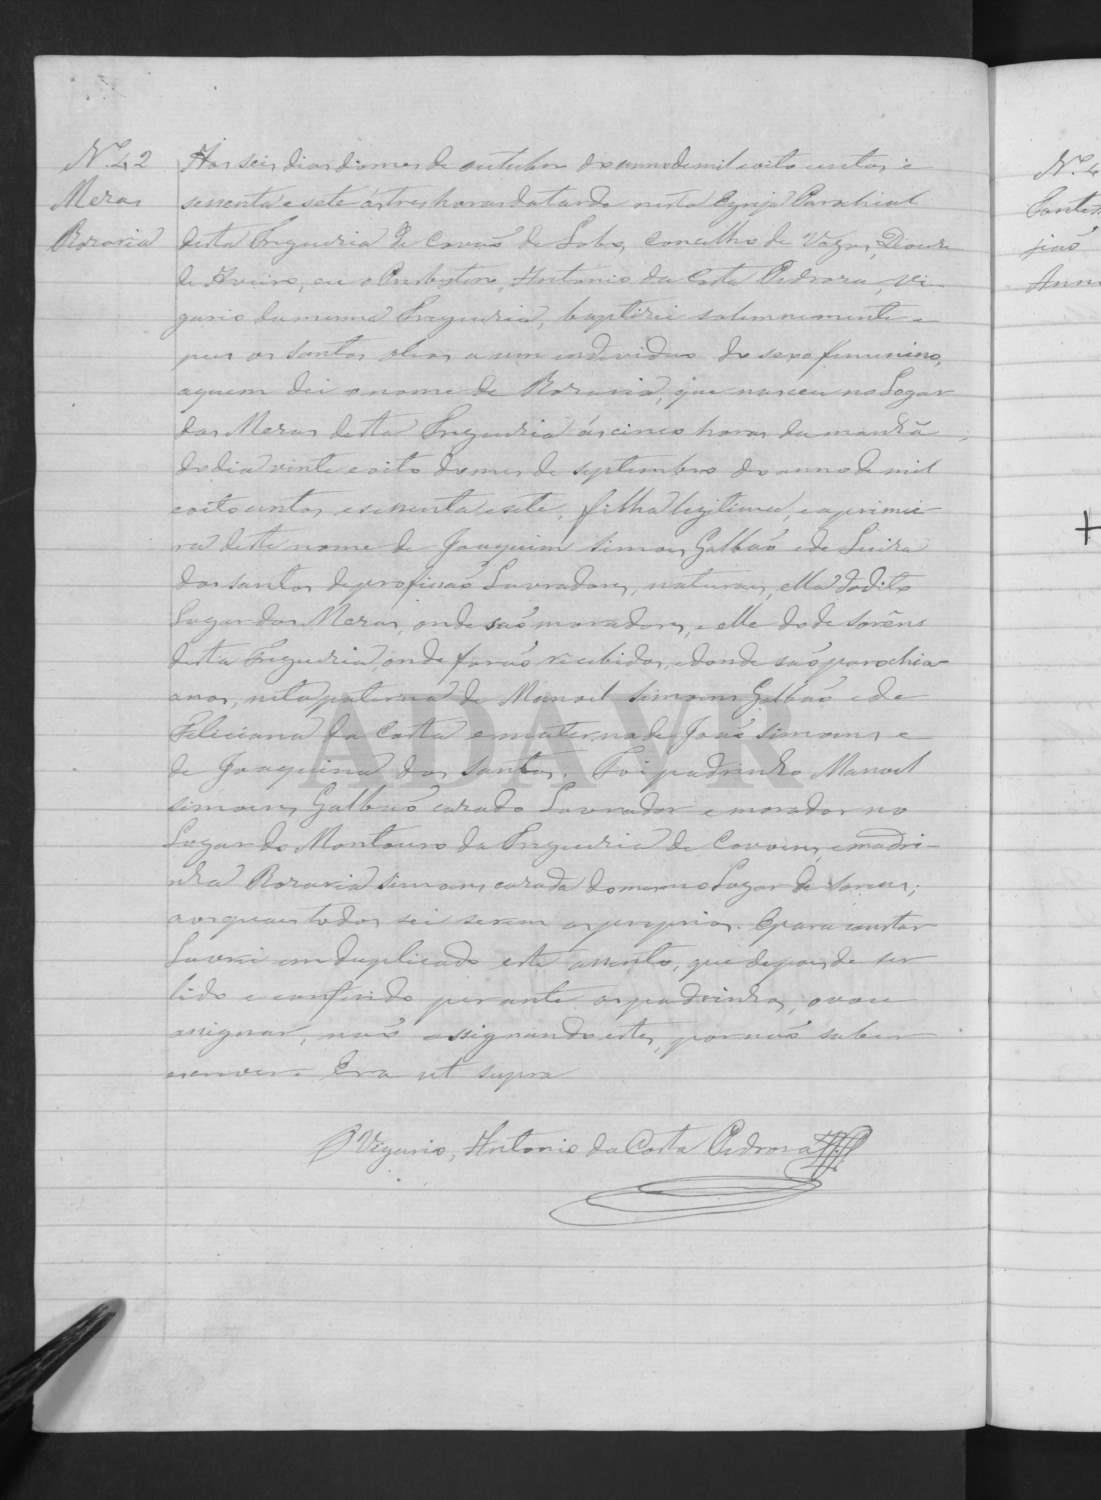 Nº 42
Mezas
Rozaria
Aos seis dias do mes de outubro do anno de mil oito centos e
sessenta e sete ás tres horas da tarde nesta Egreja Parochial
desta Freguezia de Covão de Lobo, Concelho de Vagos, Diocese
de Aveiro, eu o Presbytero, Antonio da Costa Pedroza, Vi-
gario da mesma Freguezia, baptizei solemnemente e
pus os santos oleos a um individuo do sexo femenino,
a quem dei o nome de Rozaria, que nasceu no Logar
das Mezas desta Freguezia ás cinco horas da manhã
do dia vinte e oito do mes de septembro do anno de mil
oito centos e sessenta e sete, filha legitima, e a primei-
ra deste nome de Joaquim Simoens Galbão e de Luiza
dos Santos de profissão Lavradores, naturaes, ella do dito
Lugar das Mezas, onde são moradores, e elle do de Sorêns
desta Freguezia, onde forão recebidos, e donde são parochia-
anos, neta paterna de Manoel Simoens Galbão e de
Feliciana da Costa e materna de João Simoens e
de Joaquina dos Santos. Foi padrinho Manoel
Simoens Galbão cazado Lavrador e morador no
Lugar do Montouro da Freguezia de Covoens, e madri-
nha Rozaria Simoens cazada do mesmo Lugar de Sorens;
aos quaes todos sei serem os proprios. E para constar
Lavrei em duplicado este assento, que depois de ser
lido e conferido perante os padrinhos, o vou
assignar, não assignando estes, por não saberem
escrever. Era ut supra
O Vigario, Antonio da Costa Pedroza
Nº 4
ADAVR